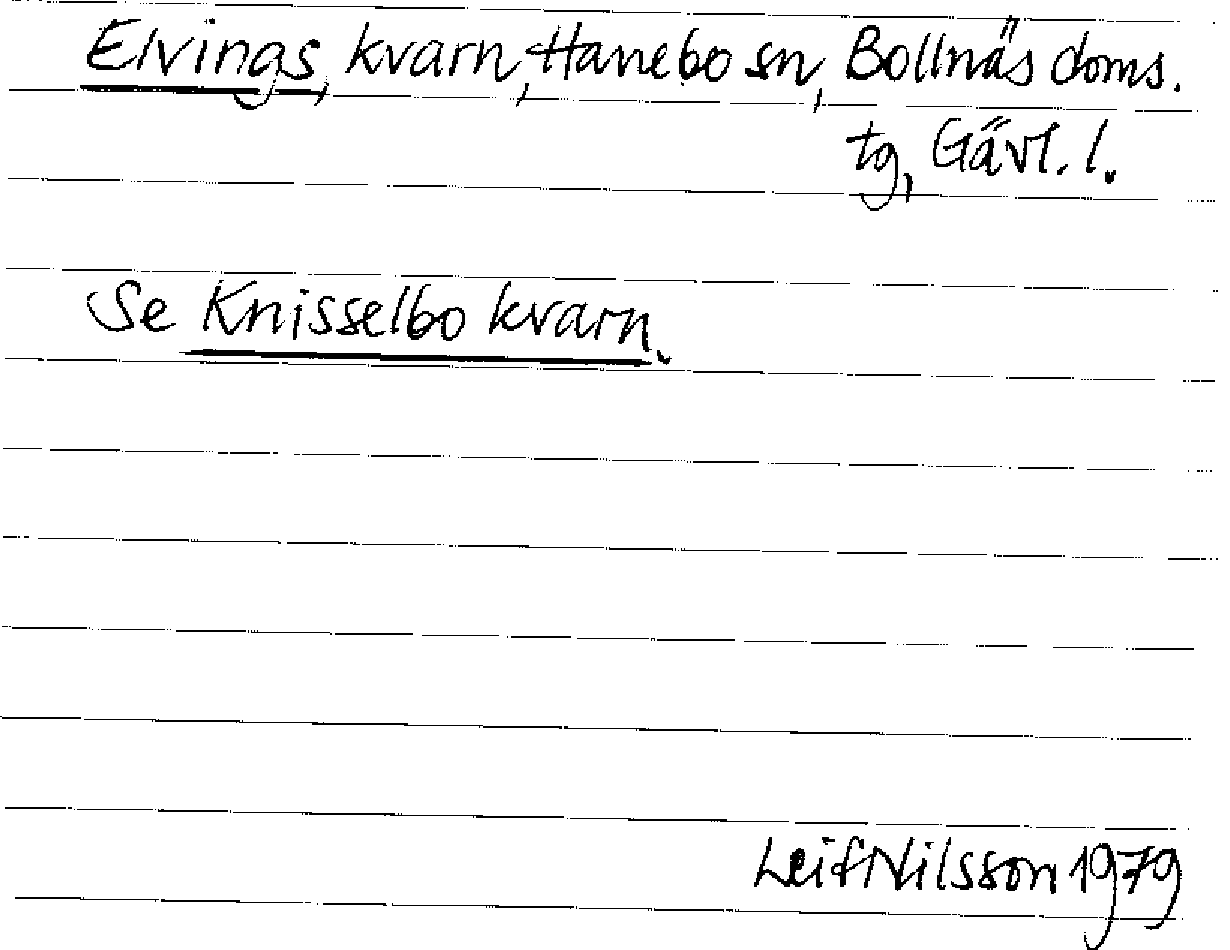 Elvings, kvarn, Hanebo sn, Bollnäs doms.
tg, Gävl. l.
Se Knisselbo kvarn.
Leif Nilsson 1979